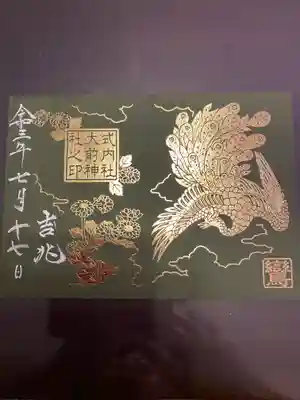 式内社
大前神
社之印
吉兆
令三年七月十七日